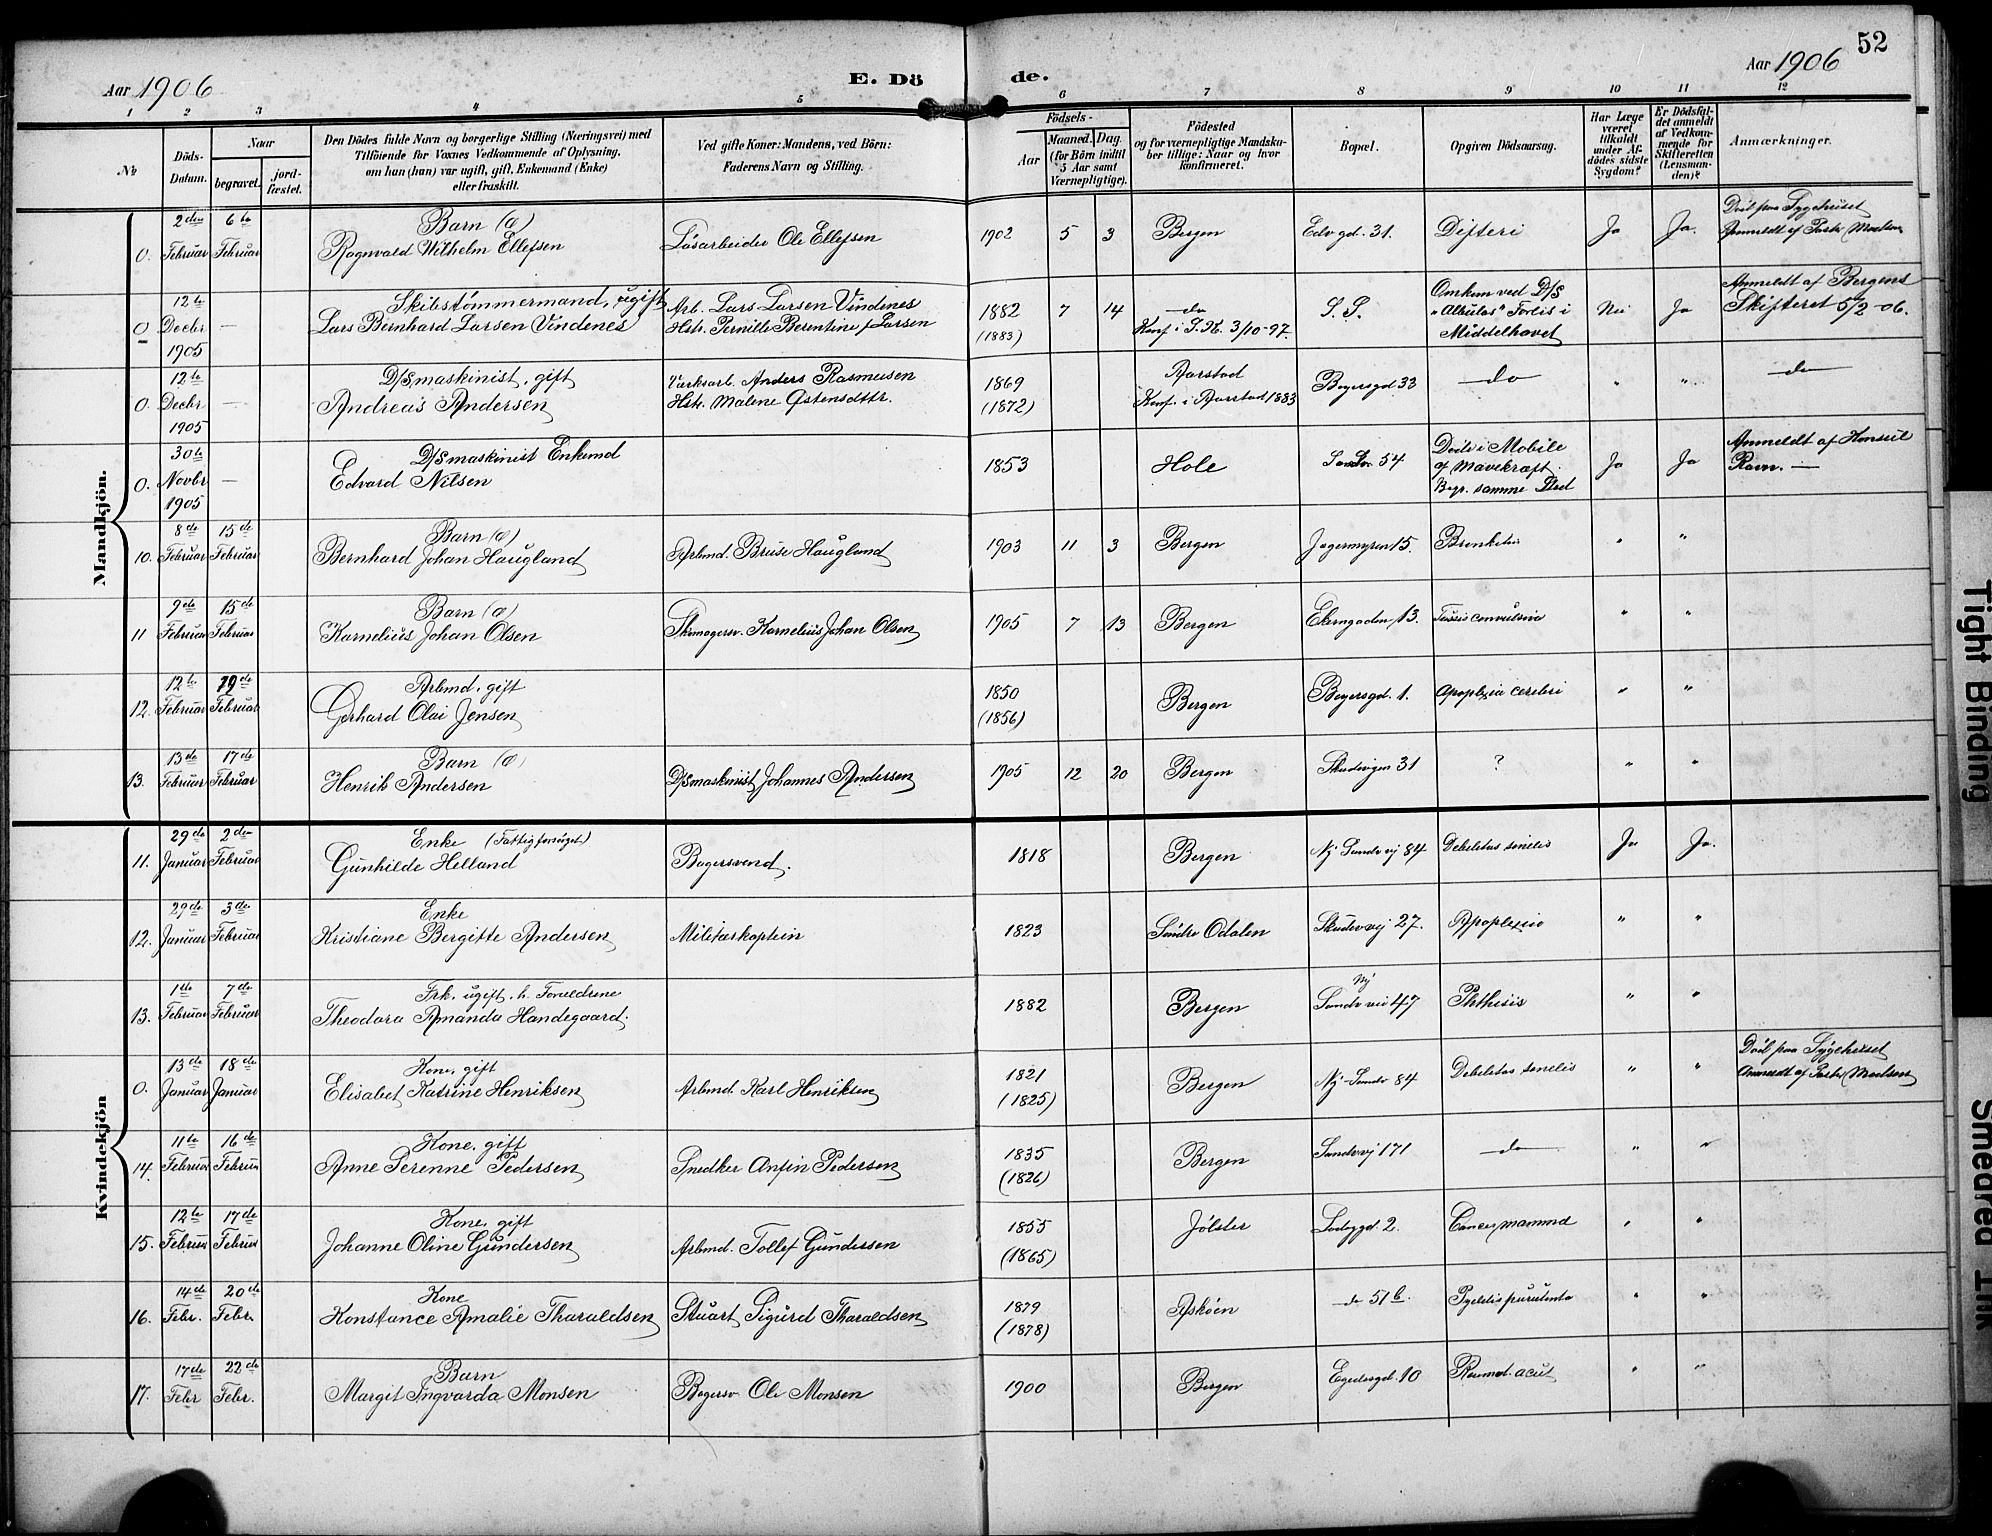 52
Aar 1906
E. Dö
de.
Aar 1906
1 2 3 4 5 6 7 8 9 10 11 12
№
Döds-Datum.
Naar
begravet.
jord-fæstet.
Den Dödes fulde Navn og borgerlige Stilling (Næringsvei) med
Tilföiende for Voxnes Vedkommende af Oplysning,
om han (hun) var ugift, gift, Enkemand (Enke)
eller fraskilt.
Ved gifte Koner: Mandens, ved Börn:
Faderens Navn og Stilling.
Födsels-
Aar
Maaned.
Dag.
(for Börn indtil
5 Aar samt
Værnepligtige).
Födested
og for værnepligtige Mandsku-
ber tillige: Naar og hvor
konfirmeret.
Bopæl.
Opgiven Dödsaarsag.
Har Læge
været
tilkaldt
under Af-
dödes sidste
Sygdom?
Er Dödsfal-
det anmeldt
af Vedkom-
mende for
Skifteretten
(Lensman-
den)?
Anmærkninger.
Mandkjön.
0. 2den Februar 6te Februar Barn (o) Ragnvald Wilhelm Ellefsen Løsarbeider Ole Ellefsen 1902 5 3 Bergen 31. Difteri Ja Ja. Død paa Sygehuset
Anmeldt af
0 12te Decbr 1905 — Skibstømmermand, ugift Lars Bernhard Larsen Vindenes Arb. Lars Larsen Vindenes
Hstr. Pernille Berentine f. Larsen 1882 (1883) 7 14 do
Konf. i 3/10-97. S. S. Omkom ved D/S
"Albulas" Forlis i
Middelhavet Nei Ja Anmeldt af Bergens
Skifteret 5/2 06.
0. 12te Decbr 1905 — D/Smaskinist, gift Andreas Andersen Værksarb. Anders Rasmusen
Hstr. Malene Østensdttr. 1869 (1872) Aarstad
Konf. i Aarstad 1883 33 do " " do
0. 30te Novbr 1905 — D/Smaskinist Enkemd Edvard Nilsen 1853 Hole 54 Døde i Mobile
af Mavekræft.
Begr. samme Sted Ja Ja Anmeldt af Konsul
Ravn. —
10. 8de Februar 15de Februar Barn (o) Bernhard Johan Haugland Arbmd. Haugland 1903 11 3 Bergen Jægermyren 15. " "
11 9de Februar 15de Februar Barn (o) Karnelius Johan Olsen Skomagersv. Karnelius Johan Olsen 1905 7 13 Bergen 13. Tussis convulsiva " "
12. 12te Februar 19de Februar Arbmd. gift Gerhard Olai Jensen 1850 (1856) Bergen 1. Apoplexia cerebri " "
13. 13de Februar 17de Februar Barn (o) Henrik Andersen D/Smaskinist Johannes Andersen 1905 12 20 Bergen Skudevigen 31 ? " "
Kvindekjön
11. 29de Januar 2den Februar Enke (Fattigforsørget) Gunhilde Helland Bagersvend. 1818 Bergen Ny Sandv vj 84 Debelitas senilis Ja Ja.
12. 29de Januar 3die Februar Enke Kristiane Bergitte Andersen Militærkaptein 1823 Søndre Odalen Skudev vj 27. Apoplexia " "
13. 1ste Februar 7de Februar Frk. ugift, h. Forældrene Theodora Amanda Handegaard. 1882 Bergen Ny Sandv vei 47 Phthisis " "
0. 13de Januar 18de Januar Kone, gift Elisabet Katrine Henriksen Arbmd. Karl Henriksen 1821 (1825) Bergen Ny Sandv 84 Debelitas senilis " " Død paa Sygehuset
Anmeldt af
14. 11te Februar 16de Februar Kone, gift Anne Serenne Pedersen Snedker Anfin Pedersen 1835 (1826) Bergen Sandv vj 171 do " "
15. 12te Februar 17de Februar Kone, gift Johanne Oline Gundersen Arbmd. Tollef Gundersen 1855 (1865) Jølster 2. Cancer mamma " "
16. 14de Febr. 20de Febr. Kone Konstance Amalie Tharaldsen Stuart Sigurd Tharaldsen 1879 (1878) Askøen do 51 b. purulenta " "
17. 17de Febr 22de Febr. Barn Margit Ingvarda Monsen Bagersv Ole Monsen 1900 Bergen 10 Reumat. acut " "
Tight Binding
Smeared Ink